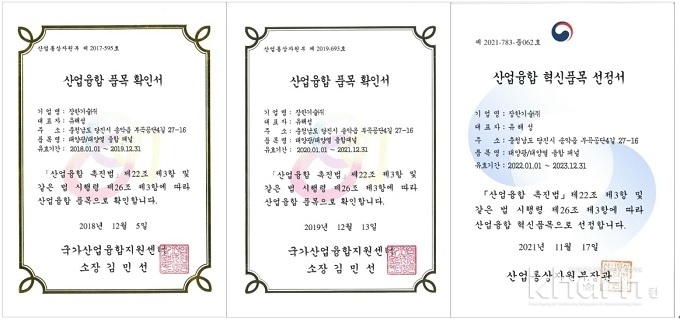 산업통상자원부 제 2017-595호
산업융합 품목 확인서
기 업 명 : 장한기술㈜
대 표 자 : 유해성
주 소 : 충청남도 당진시 송악읍 부곡공단4길 27-16
품 목 명 : 태양광/태양열 융합 패널
유효기간 : 2018.01.01 ~ 2019.12.31
「산업융합 촉진법」 제22조 제3항 및
같은 법 시행령 제26조 제3항에 따라
산업융합 품목으로 확인합니다.
2018 년 12 월 5일
국가산업융합지원센터
소장 김 민 선
산업통상자원부 제 2019-693호
산업융합 품목 확인서
기 업 명 : 장한기술㈜
대 표 자 : 유해성
주 소 : 충청남도 당진시 송악읍 부곡공단4길 27-16
품 목 명 : 태양광/태양열 융합패널
유효기간 : 2020.01.01 ~ 2021.12.31
「산업융합 촉진법」 제22조 제3항 및
같은 법 시행령 제26조 제3항에 따라
산업융합 품목으로 확인합니다.
2019년 12월 13일
국가산업융합지원센터
소장 김 민 선
제 2021-783-융062호
산업융합 혁신품목 선정서
기 업 명 : 장한기술㈜
대 표 자 : 유 해 성
주 소 : 충청남도 당진시 송악읍 부곡공단4길 27-16
품 목 명 : 태양광/태양열 융합 패널
유효기간 : 2022.01.01 ~ 2023.12.31
「산업융합 촉진법」 제22조 제3항 및
같은 법 시행령 제26조 제3항에 따라
산업융합 혁신품목으로 선정합니다.
2021년 11월 17일
산업통상자원부장관
kharn